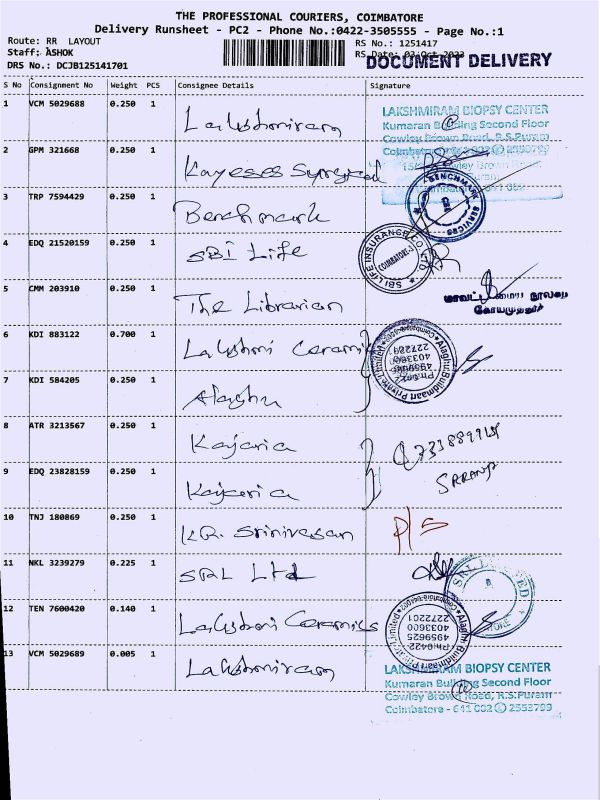 THE PROFESSIONAL COURIERS, COIMBATORE
Delivery Runsheet - PC2 - Phone No.:0422-3505555 - Page No.:1
Route: RR LAYOUT
RS No.: 1251417
Staff: ASHOK
RS Date: 03-Oct-2023
DOCUMENT DELIVERY
DRS No.: DCJB125141701
S No Consignment No Weight PCS Consignee Details Signature
1 VCM 5029688 0.250 1 Lakshmiram
LAKSHMIRAM BIOPSY CENTER
Kumaran Building Second Floor
Cowley Brown Road, R.S.Puram
Coimbatore 641 002 2553799
2 GPM 321668 0.250 1
3 TRP 7594429 0.250 1 Benchmark
BENCHMARK SERVICES
CBE
4 EDQ 21520159 0.250 1 SBI Life
SBI LIFE INSURANCE CO LTD
COIMBATORE-2
5 CMM 203910 0.250 1 The Librarian
மாவட்ட மைய நூலகம்
கோயமுத்தூர்
6 KDI 883122 0.700 1 Lakshmi Ceramik
Alaghu Buildmaart Private Limited
Coimbatore
7 KDI 584205 0.250 1 Alaghu
8 ATR 3213567 0.250 1 Kajaria
9 EDQ 23828159 0.250 1 Kajaria
10 TNJ 180869 0.250 1 K.R. Srinivasan P/S
11 NKL 3239279 0.225 1 SRL Ltd
SRL LIMITED
12 TEN 7600420 0.140 1 Lakshmi Ceramics
Alaghu Buildmaart Private Limited
Ph:0422
4959625
4033600
2272201
13 VCM 5029689 0.005 1 Lakshmiram
LAKSHMIRAM BIOPSY CENTER
Kumaran Building Second Floor
Cowley Brown Road, R.S.Puram
Coimbatore - 641 002 2553799